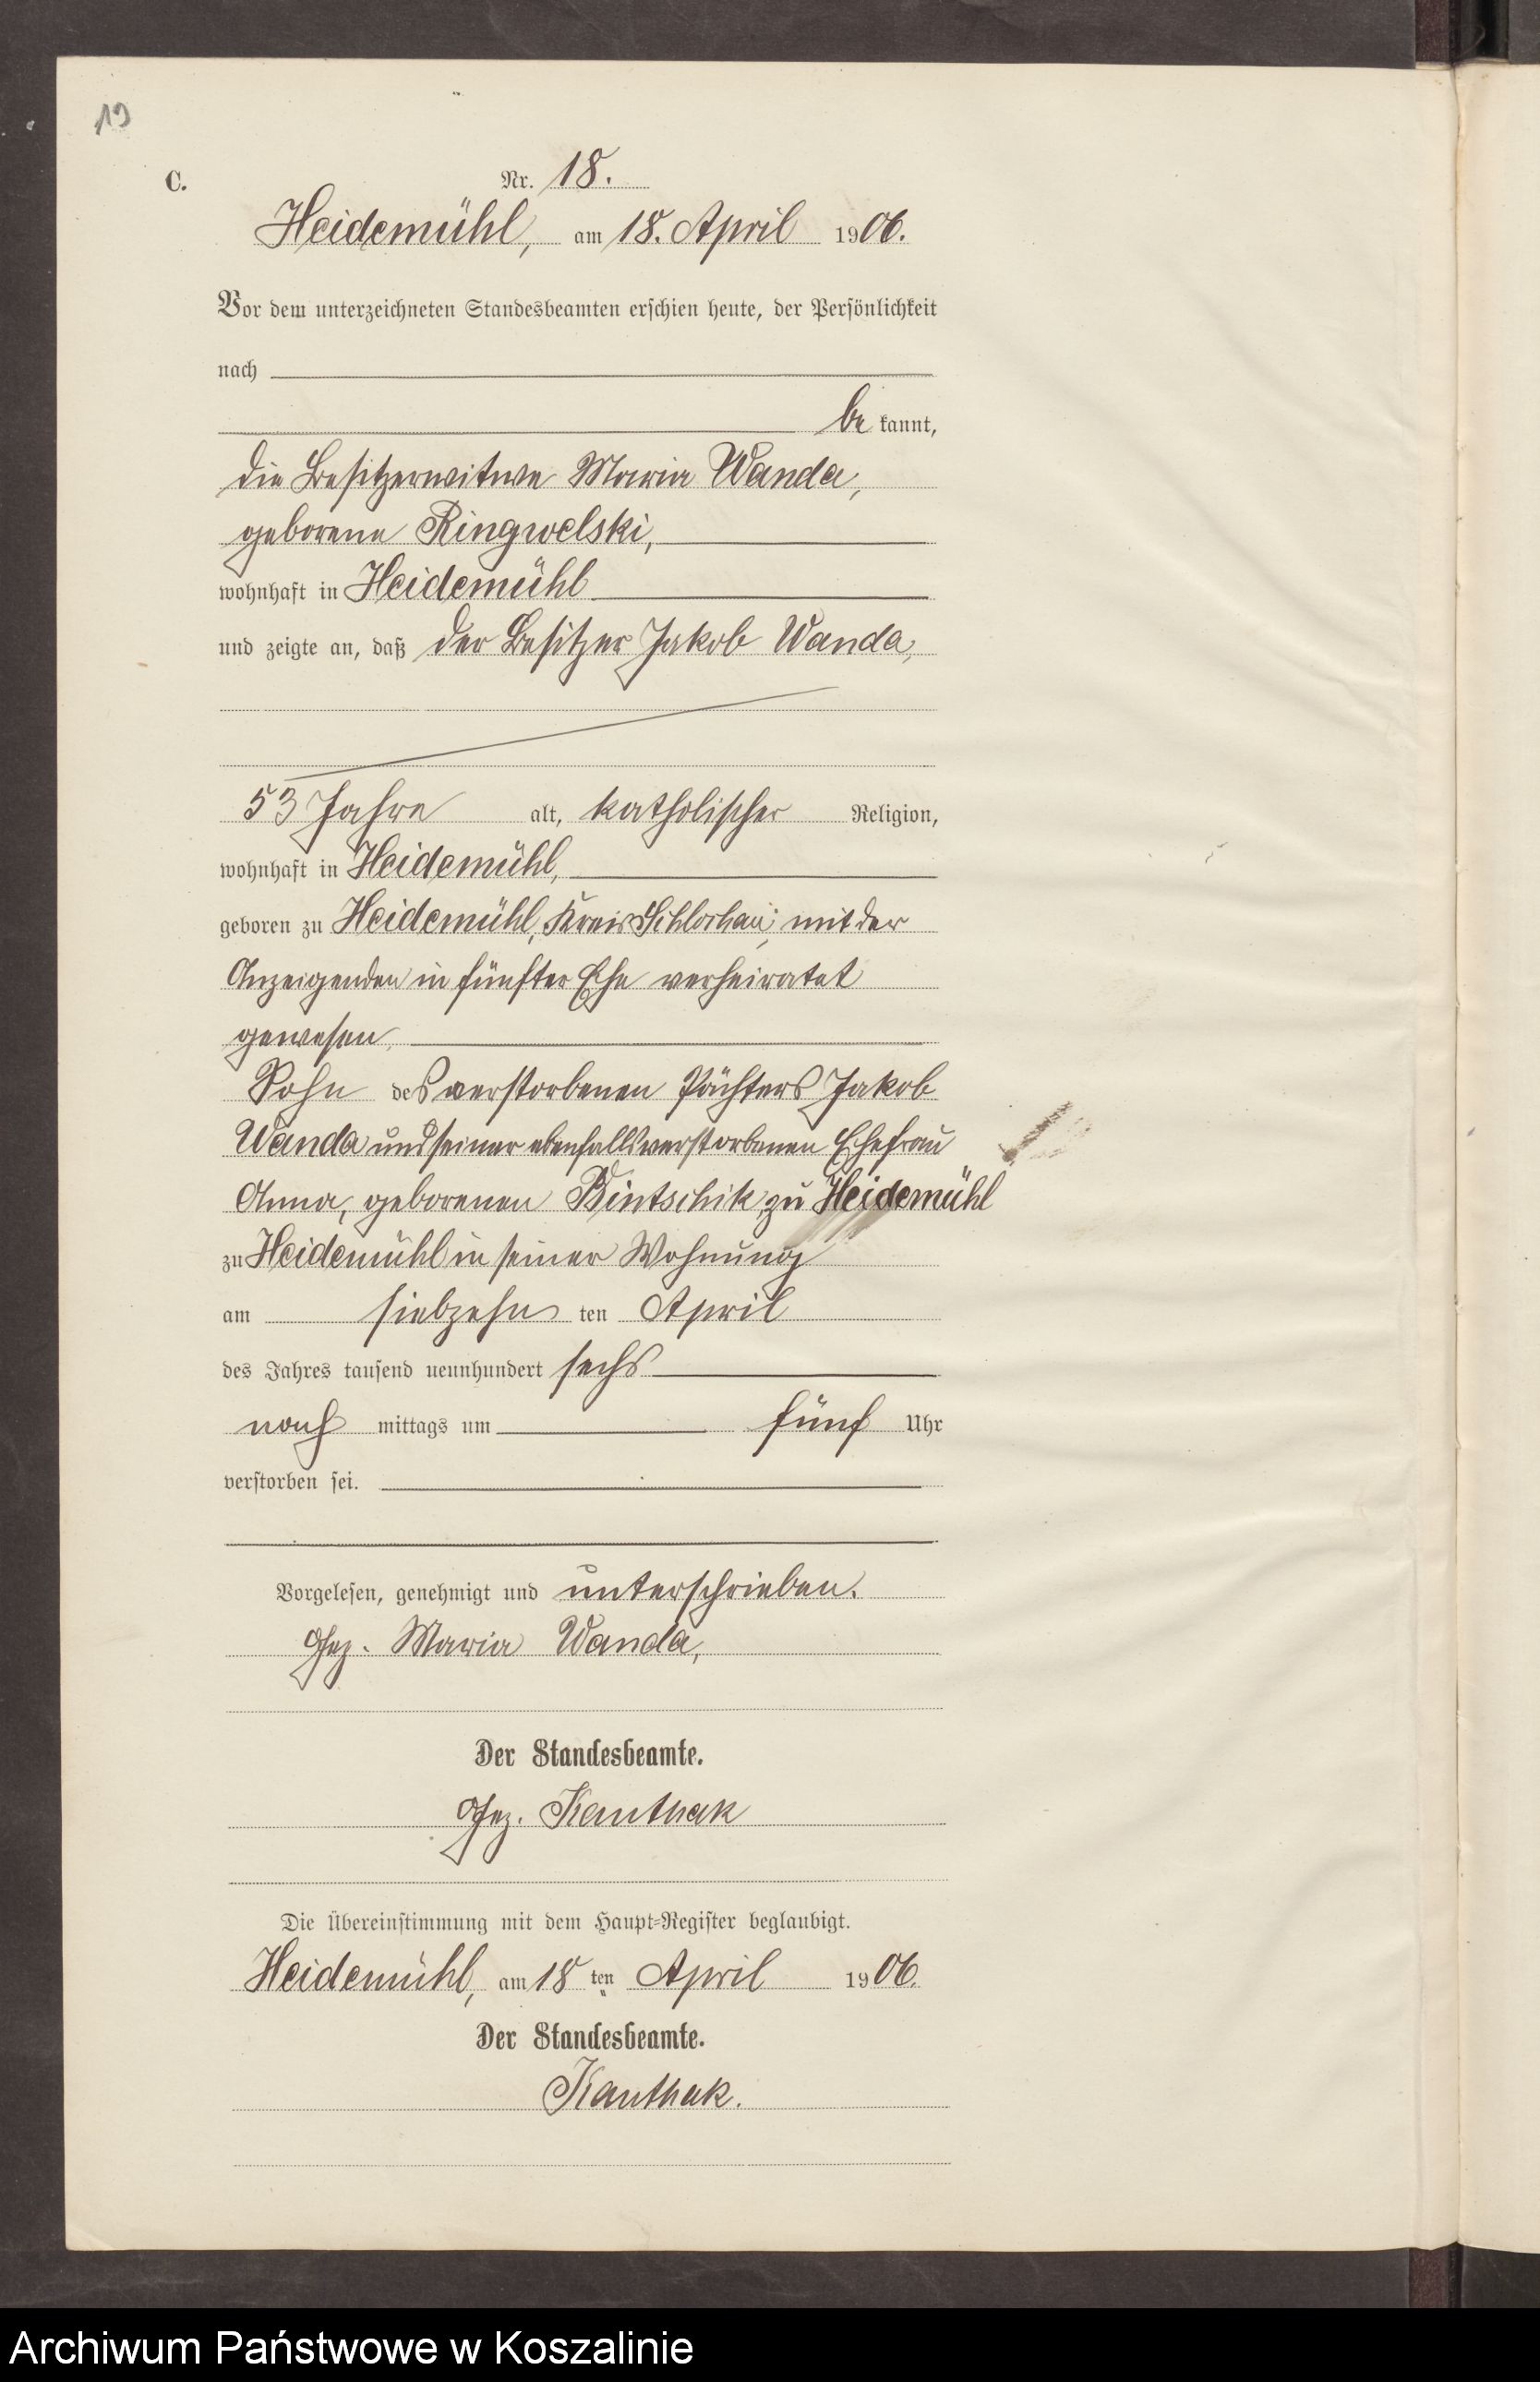 19
C.
Nr. 18.
Heidemühl, am 18. April 1906.
Vor dem unterzeichneten Standesbeamten erschien heute, der Persönlichkeit
nach
be kannt,
die Besitzerwitwe Maria Wanda,
geborene Ringwelski,
wohnhaft in Heidemühl
und zeigte an, daß der Besitzer Jakob Wanda,
53 Jahre alt, katholischer Religion,
wohnhaft in Heidemühl,
geboren zu Heidemühl, Kreis Schlochau, mit der
Anzeigenden in fünfter Ehe verheiratet
gewesen,
Sohn des verstorbenen Pächters Jakob
Wanda und seiner ebenfalls verstorbenen Ehefrau
Anna, geborenen Bintschik, zu Heidemühl
zu Heidemühl in seiner Wohnung
am siebzehn ten April
des Jahres tausend neunhundert sechs
nach mittags um fünf Uhr
verstorben sei.
Vorgelesen, genehmigt und unterschrieben.
Gez. Maria Wanda,
Der Standesbeamte.
Gez. Kanthak
Die Übereinstimmung mit dem Haupt-Register beglaubigt.
Heidemühl, am 18 ten April 1906.
Der Standesbeamte.
Kanthak.
Archiwum Państwowe w Koszalinie